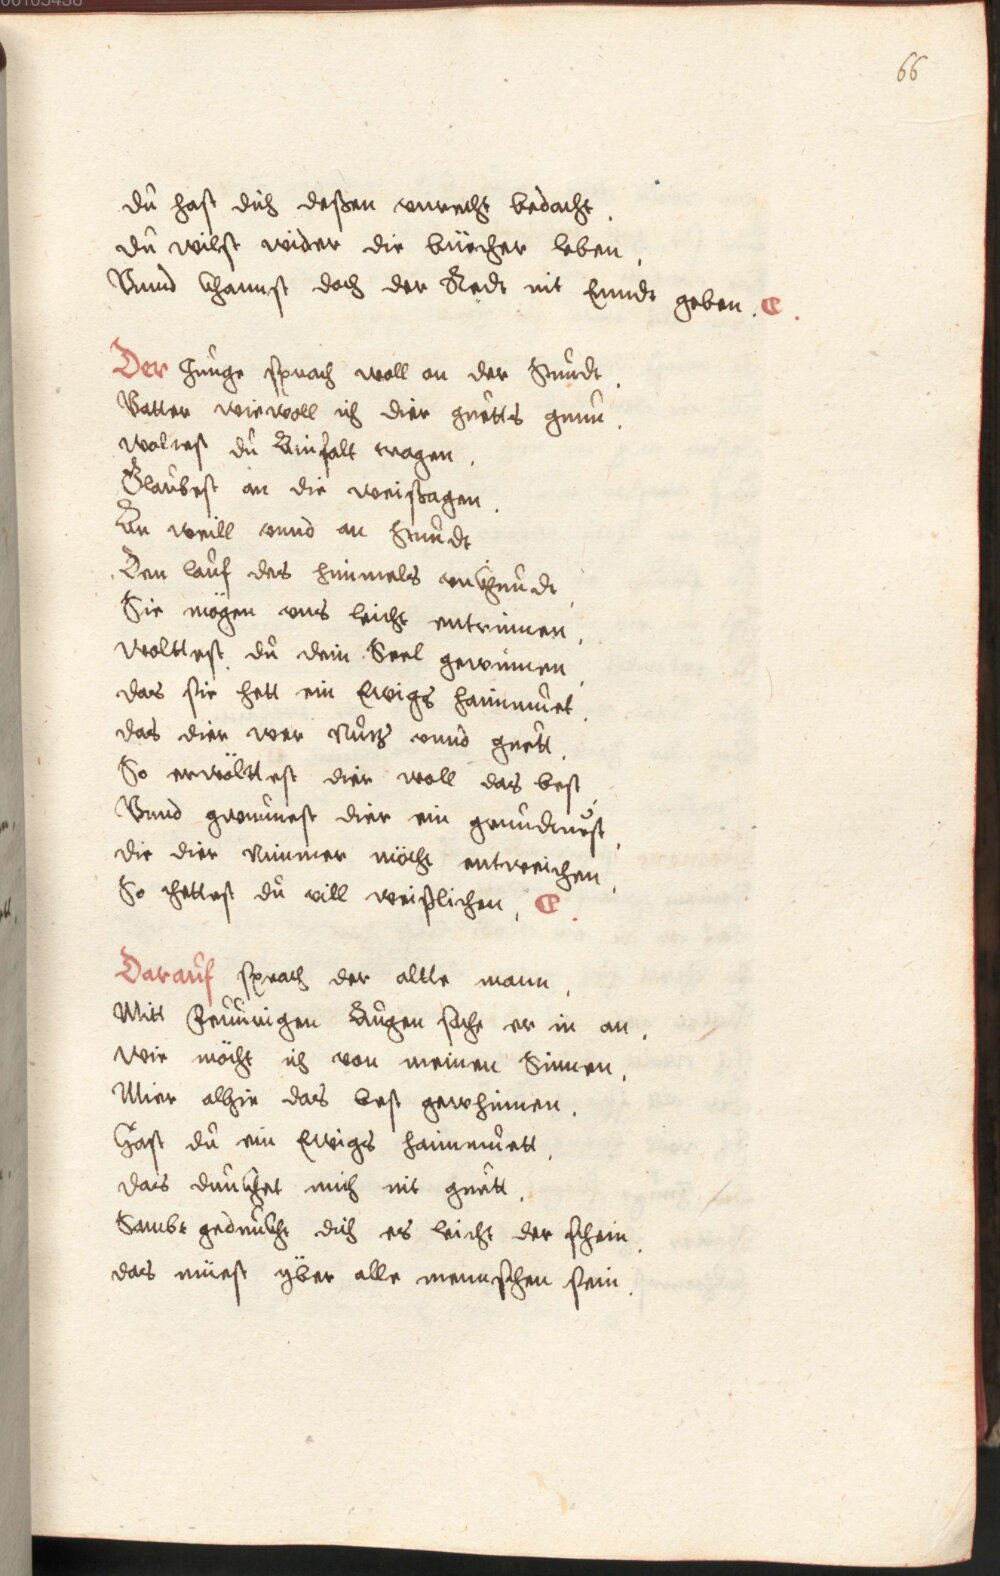 66
dŭ hast dich deßen vnrecht bedacht.
dŭ wilst wider die büecher leben,
Vnnd Channst doch der Redt nit Ennde geben. C.
Der Junge sprach woll an der Stundt.
Vatter wiewoll ich dier guetts gunn.
woltest dŭ Ainfalt tragen,
Glaubest an die weißagen.
An weill vnnd an Stundt
Den lauf des himmels
Sie mögen vns leicht entrinnen,
wolttest dŭ dein Seel gewinnen
das sie hett ein Ewigs haimmuet.
das dier wer Nutz vnnd guett.
So erwölttest dier woll das best
Vnnd gewunnest dier ein grundtuest,
die dier Nimmer möcht entweichen,
So thettest dŭ vill weißlichen, C.
Darauf sprach der altte mann,
Mitt Zeuurigen Augen sache er in an,
wie möcht ich von meinen Sinnen,
Mier alhie das best gewhinnen,
Hast dŭ ein Ewigs haimmuett,
das duncket mich nit guett,
Sambt geduncht dich es leicht der schein,
das müest yber alle mennschen sein.